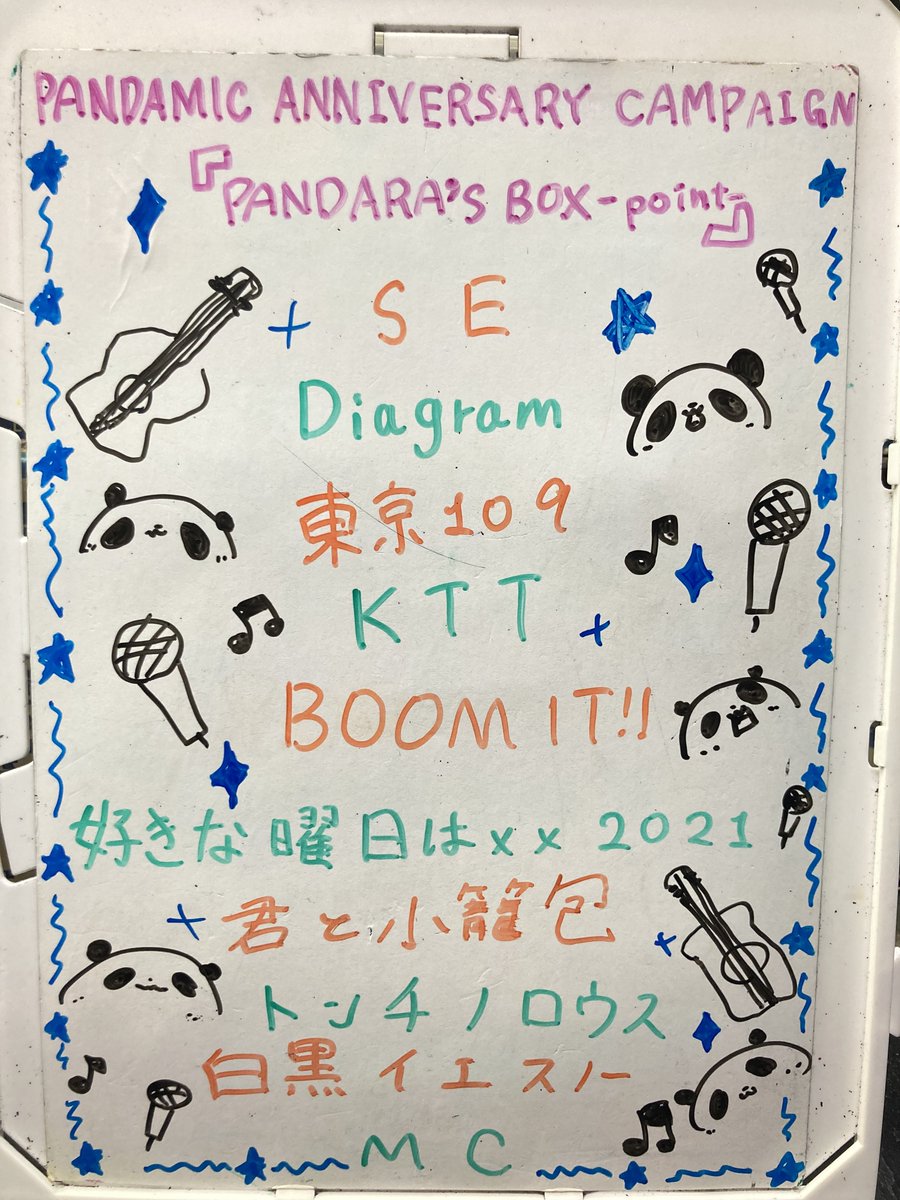 PANDAMIC ANNIVERSARY CAMPAIGN
『PANDARA'S BOX -point-』
SE
Diagram
東京109
KTT
BOOM IT!!
好きな曜日はxx 2021
君と小籠包
トンチノロウス
白黒イエスノー
MC